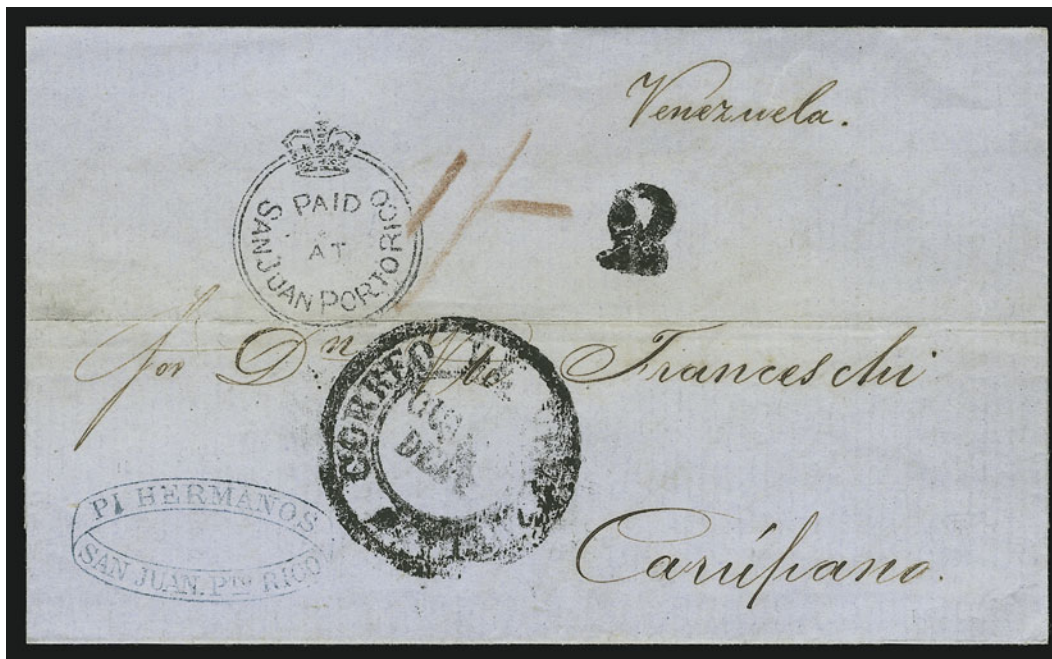 Venezuela.
PAID
AT
SAN JUAN PORTO RICO
1/-
2
Dn Franceschi
CORREO
Carúpano.
PI HERMANOS
SAN JUAN. Pto RICO